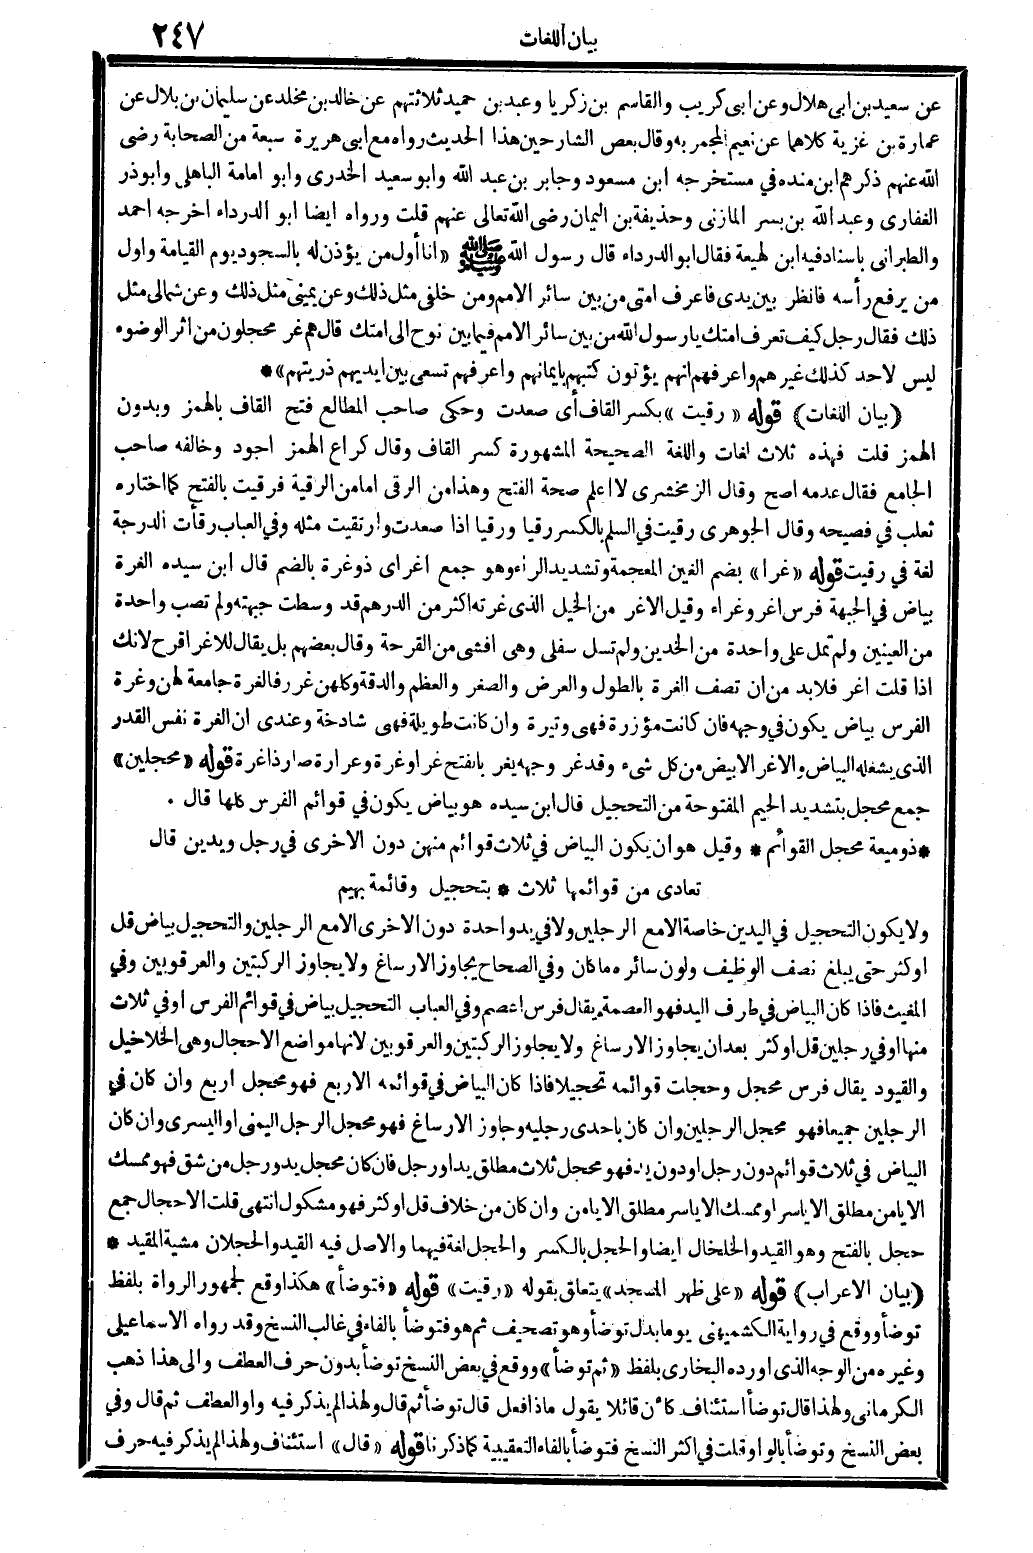 بيان اللغات
٢٤٧
عن سعيد بن ابى هلال وعن ابى كريب والقاسم بن زكريا وعبد بن حميد ثلاثتهم عن خالد بن مخلد عن سليمان بن بلال عن
عمارة بن غزية كلاهما عن نعيم المجمر به وقال بعض الشارحين هذا الحديث رواه مع ابى هريرة سبعة من الصحابة رضى
الله عنهم ذكرهم ابن منده في مستخرجه ابن مسعود وجابر بن عبد الله وأبو سعيد الخدرى وابو امامة الباهلى وابوذر
الغفارى وعبد الله بن بسر المازنى وحذيفة بن اليمان رضى الله تعالى عنهم قلت ورواه ايضا ابو الدرداء اخرجه احمد
والطبرانى باسناد فيه ابن لهيعة فقال ابو الدرداء قال رسول الله ﷺ «انا أول من يؤذن له بالسجود يوم القيامة واول
من يرفع رأسه فانظر بين يدى فاعرف امتى من بين سائر الامم ومن خلفى مثل ذلك وعن يمينى مثل ذلك وعن شمالى مثل
ذلك فقال رجل كيف تعرف امتك يا رسول الله من بين سائر الامم فيما بين نوح الى امتك قال هم غر محجلون من اثر الوضوء
ليس لاحد كذلك غيرهم واعرفهم انهم يؤتون كتبهم بايمانهم واعرفهم تسعى بين ايديهم ذريتهم» *
(بيان اللغات) قوله «رقيت» بكسر القاف أى صعدت وحكى صاحب المطالع فتح القاف بالهمز وبدون
الهمز قلت فهذه ثلاث لغات واللغة الصحيحة المشهورة كسر القاف وقال كراع الهمز اجود وخالفه صاحب
الجامع فقال عدمه اصح وقال الزمخشرى لا اعلم صحة الفتح وهذا من الرقى اما من الرقية فرقيت بالفتح كما اختاره
ثعلب في فصيحه وقال الجوهرى رقيت في السلم بالكسر رقيا ورقيا اذا صعدت وارتقيت مثله وفي العباب رقأت الدرجة
لغة في رقيت قوله «غرا» بضم الغين المعجمة وتشديد الراء وهو جمع اغر اى ذو غرة بالضم قال ابن سيده الغرة
بياض في الجبهة فرس اغر وغراء وقيل الاغر من الخيل الذى غرته اكثر من الدرهم قد وسطت جبهته ولم تصب واحدة
من العينين ولم تمل على واحدة من الخدين ولم تسل سفلى وهى افشى من القرحة وقال بعضهم بل يقال للاغر اقرح لانك
اذا قلت اغر فلابد من ان تصف الغرة بالطول والعرض والصغر والعظم والدقة وكلهن غرر فالغرة جامعة لهن وغرة
الفرس بياض يكون في وجهه فان كانت مؤزرة فهى وتيرة وان كانت طويلة فهى شادخة وعندى ان الغرة نفس القدر
الذى يشغله البياض والاغر الابيض من كل شىء وقد غر وجهه يغر بالفتح غرا وغرة وغرارة صار ذا غرة قوله «محجلين»
جمع محجل بتشديد الجيم المفتوحة من التحجيل قال ابن سيده هو بياض يكون في قوائم الفرس كلها قال .
* ذو ميعة محجل القوائم * وقيل هو ان يكون البياض في ثلاث قوائم منهن دون الاخرى في رجل ويدين قال
تعادى من قوائمها ثلاث * بتحجيل وقائمة بهيم
ولا يكون التحجيل في اليدين خاصة الا مع الرجلين ولا في يد واحدة دون الاخرى الا مع الرجلين والتحجيل بياض قل
او كثر حتى يبلغ نصف الوظيف ولون سائره ما كان وفي الصحاح يجاوز الارساغ ولا يجاوز الركبتين والعرقوبين وفي
المغيث فاذا كان البياض في طرف اليد فهو العصمة يقال فرس اعصم وفي العباب التحجيل بياض في قوائم الفرس او في ثلاث
منها او في رجلين قل او كثر بعد ان يجاوز الارساغ ولا يجاوز الركبتين والعرقوبين لانها مواضع الاحجال وهى الخلاخيل
والقيود يقال فرس محجل وحجلت قوائمه تحجيلا فاذا كان البياض في قوائمه الاربع فهو محجل اربع وان كان في
الرجلين جميعا فهو محجل الرجلين وان كان باحدى رجليه وجاوز الارساغ فهو محجل الرجل اليمنى او اليسرى وان كان
البياض في ثلاث قوائم دون رجل او دون يد فهو محجل ثلاث مطلق يد او رجل فان كان محجل يد ورجل من شق فهو ممسك
الايامن مطلق الاياسر او ممسك الاياسر مطلق الايامن وان كان من خلاف قل او كثر فهو مشكول انتهى قلت الاحجال جمع
حجل بالفتح وهو القيد والخلخال ايضا والحجل بالكسر والحجل لغة فيهما والاصل فيه القيد والحجلان مشية المقيد *
(بيان الاعراب) قوله «على ظهر المسجد» يتعلق بقوله «رقيت» قوله «فتوضأ» هكذا وقع لجمهور الرواة بلفظ
توضأ ووقع في رواية الكشميهنى يوما بدل توضأ وهو تصحيف ثم هو فتوضأ بالفاء في غالب النسخ وقد رواه الاسماعيلى
وغيره من الوجه الذى اورده البخارى بلفظ «ثم توضأ» ووقع في بعض النسخ توضأ بدون حرف العطف والى هذا ذهب
الكرمانى ولهذا قال توضأ استئناف كأن قائلا يقول ماذا فعل قال توضأ ثم قال ولهذا لم يذكر فيه واو العطف ثم قال وفي
بعض النسخ وتوضأ بالواو قلت في اكثر النسخ فتوضأ بالفاء التعقيبية كما ذكرنا قوله «قال» استئناف ولهذا لم يذكر فيه حرف